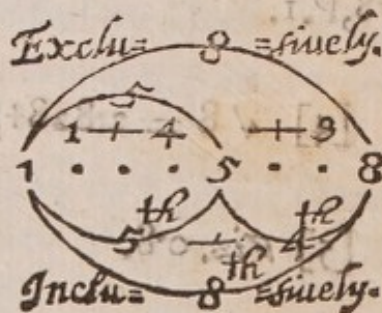 Exclu= 8 =sively.
5
1 + 4 + 3
1 . . . 5 . . 8
5th + 4th
Inclu= 8th =sively.